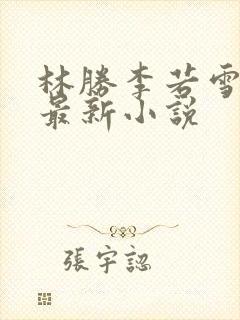 林勝李若雪
最新小說
張宇認